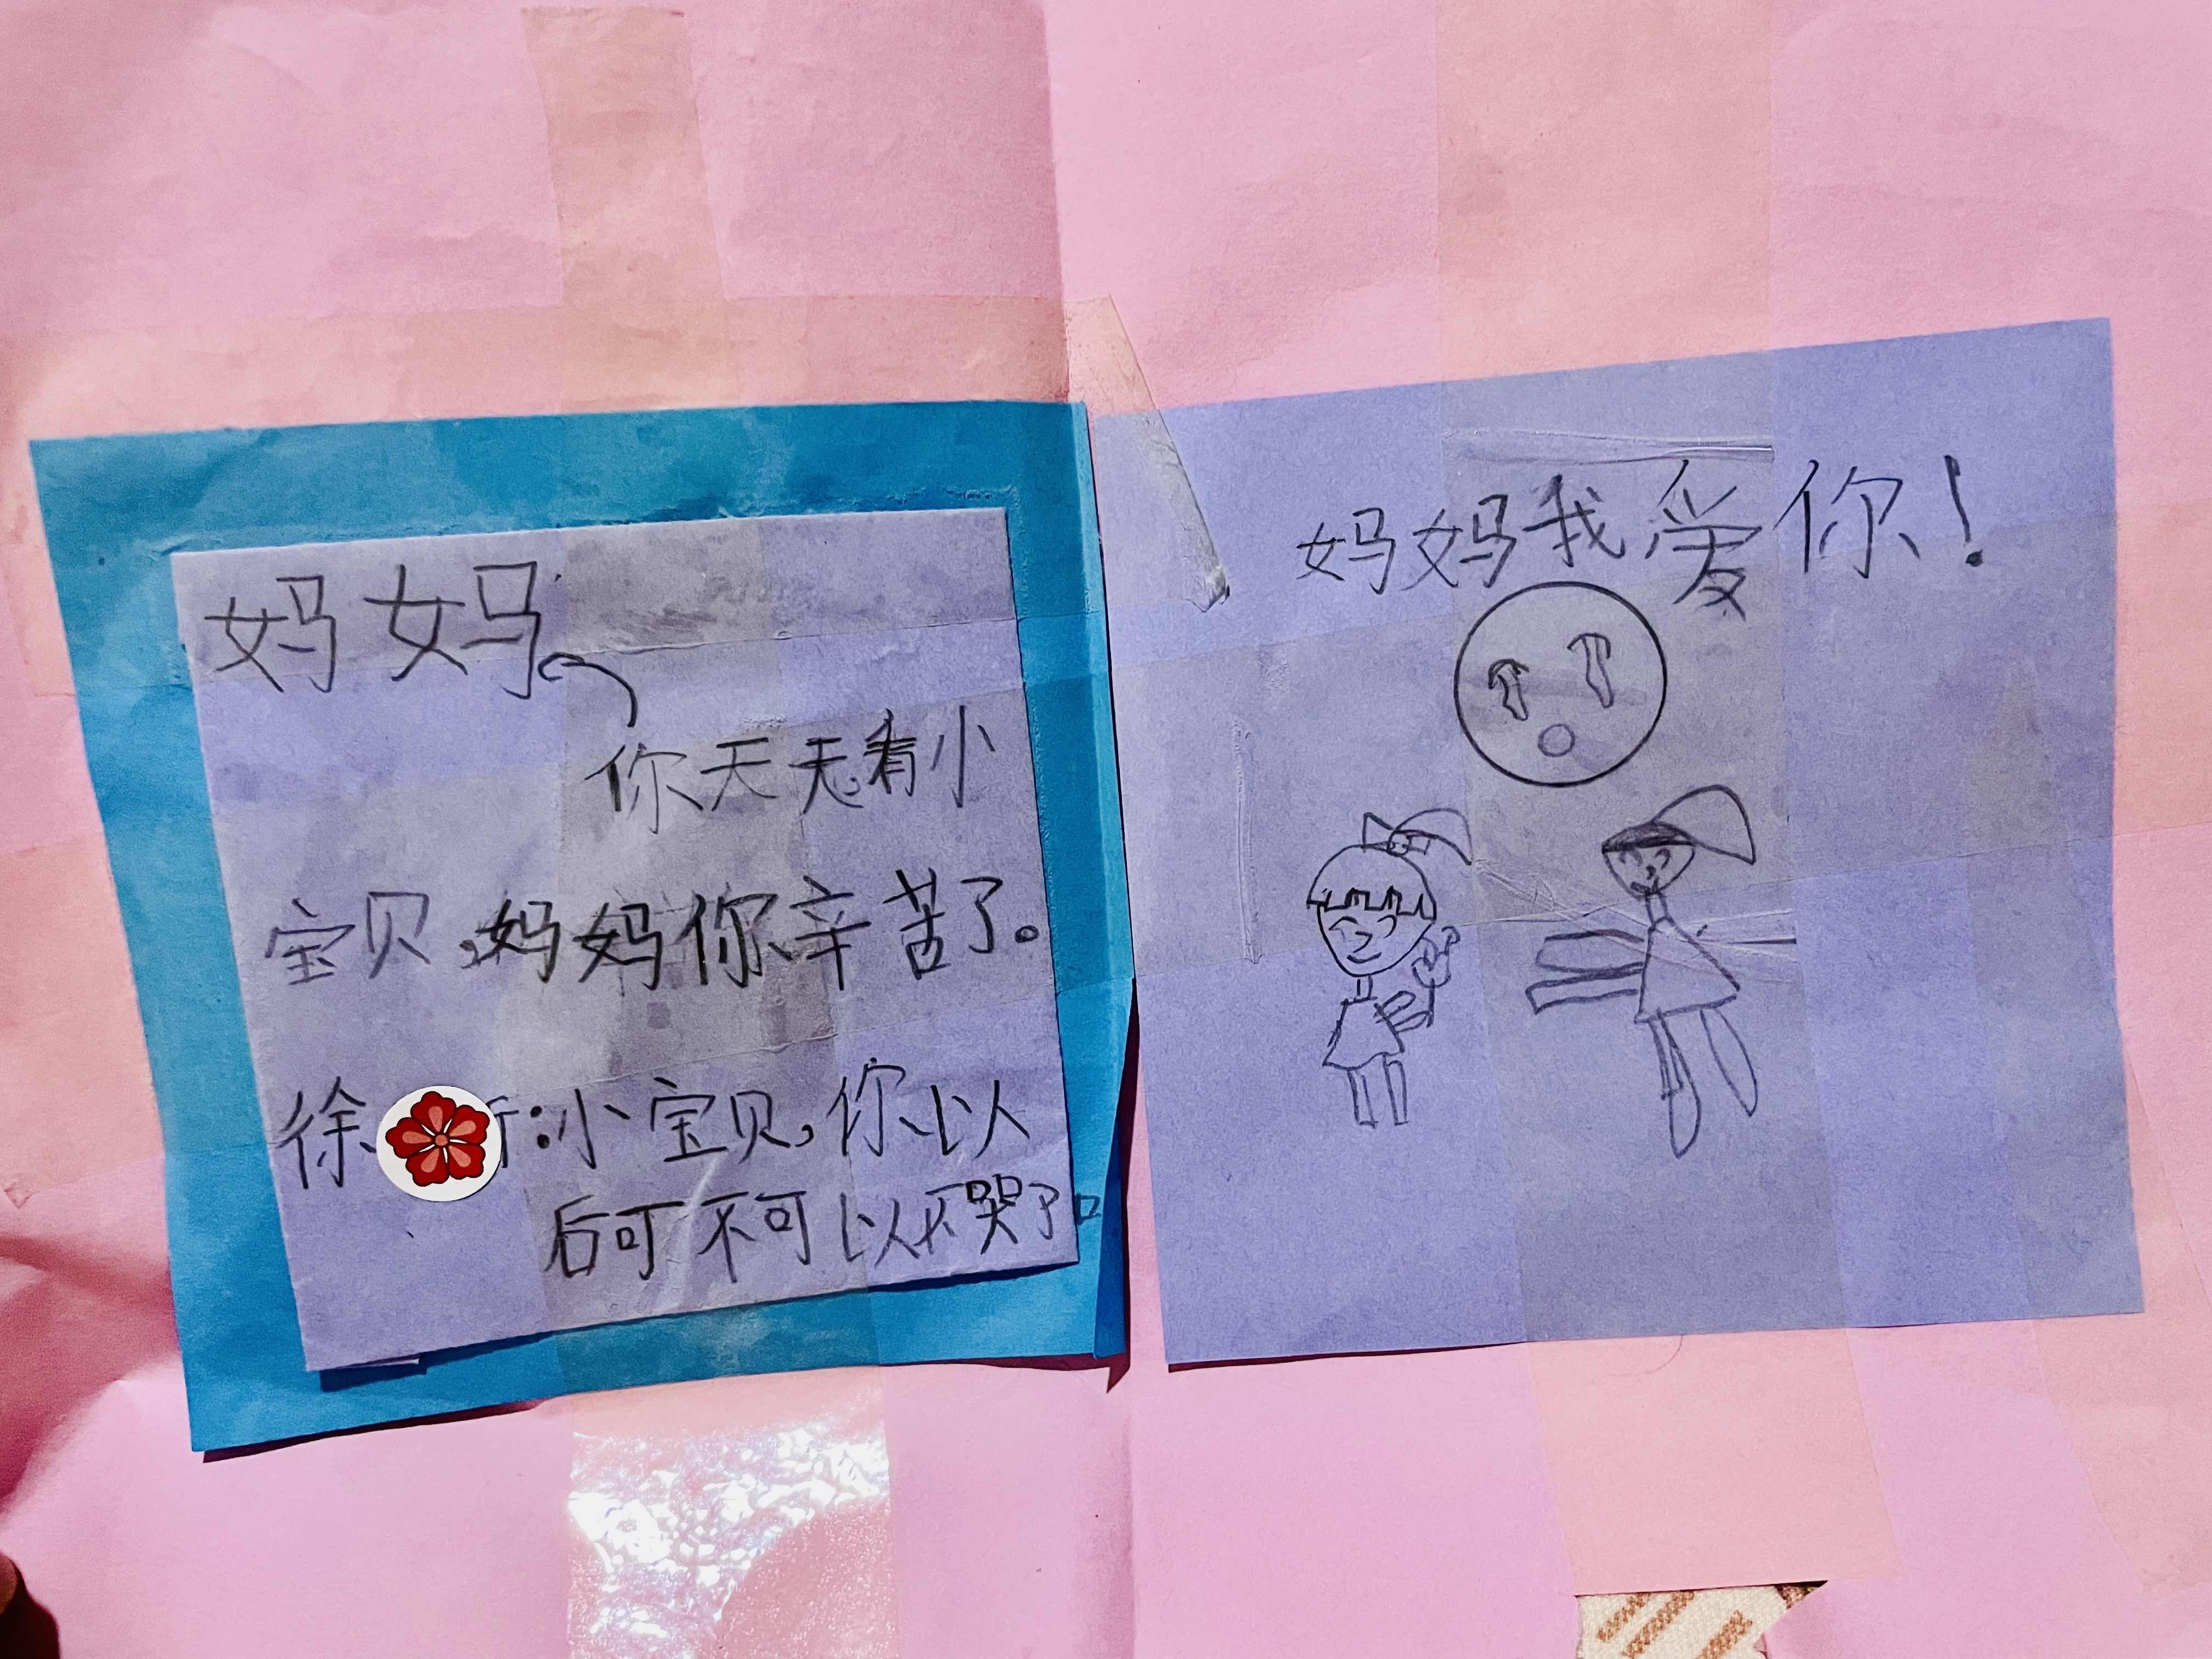 妈妈
你天天看小
宝贝,妈妈你辛苦了。
徐 :小宝贝,你以
后可不可以不哭了
妈妈我爱你!